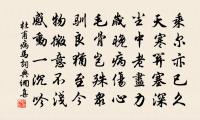 乘尔亦已久
天寒關塞深
塵中老盡力
歲晚病傷心
毛骨豈殊衆
馴良猶至今
物微意不淺
感動一沉吟
杜甫病馬詞典網喜